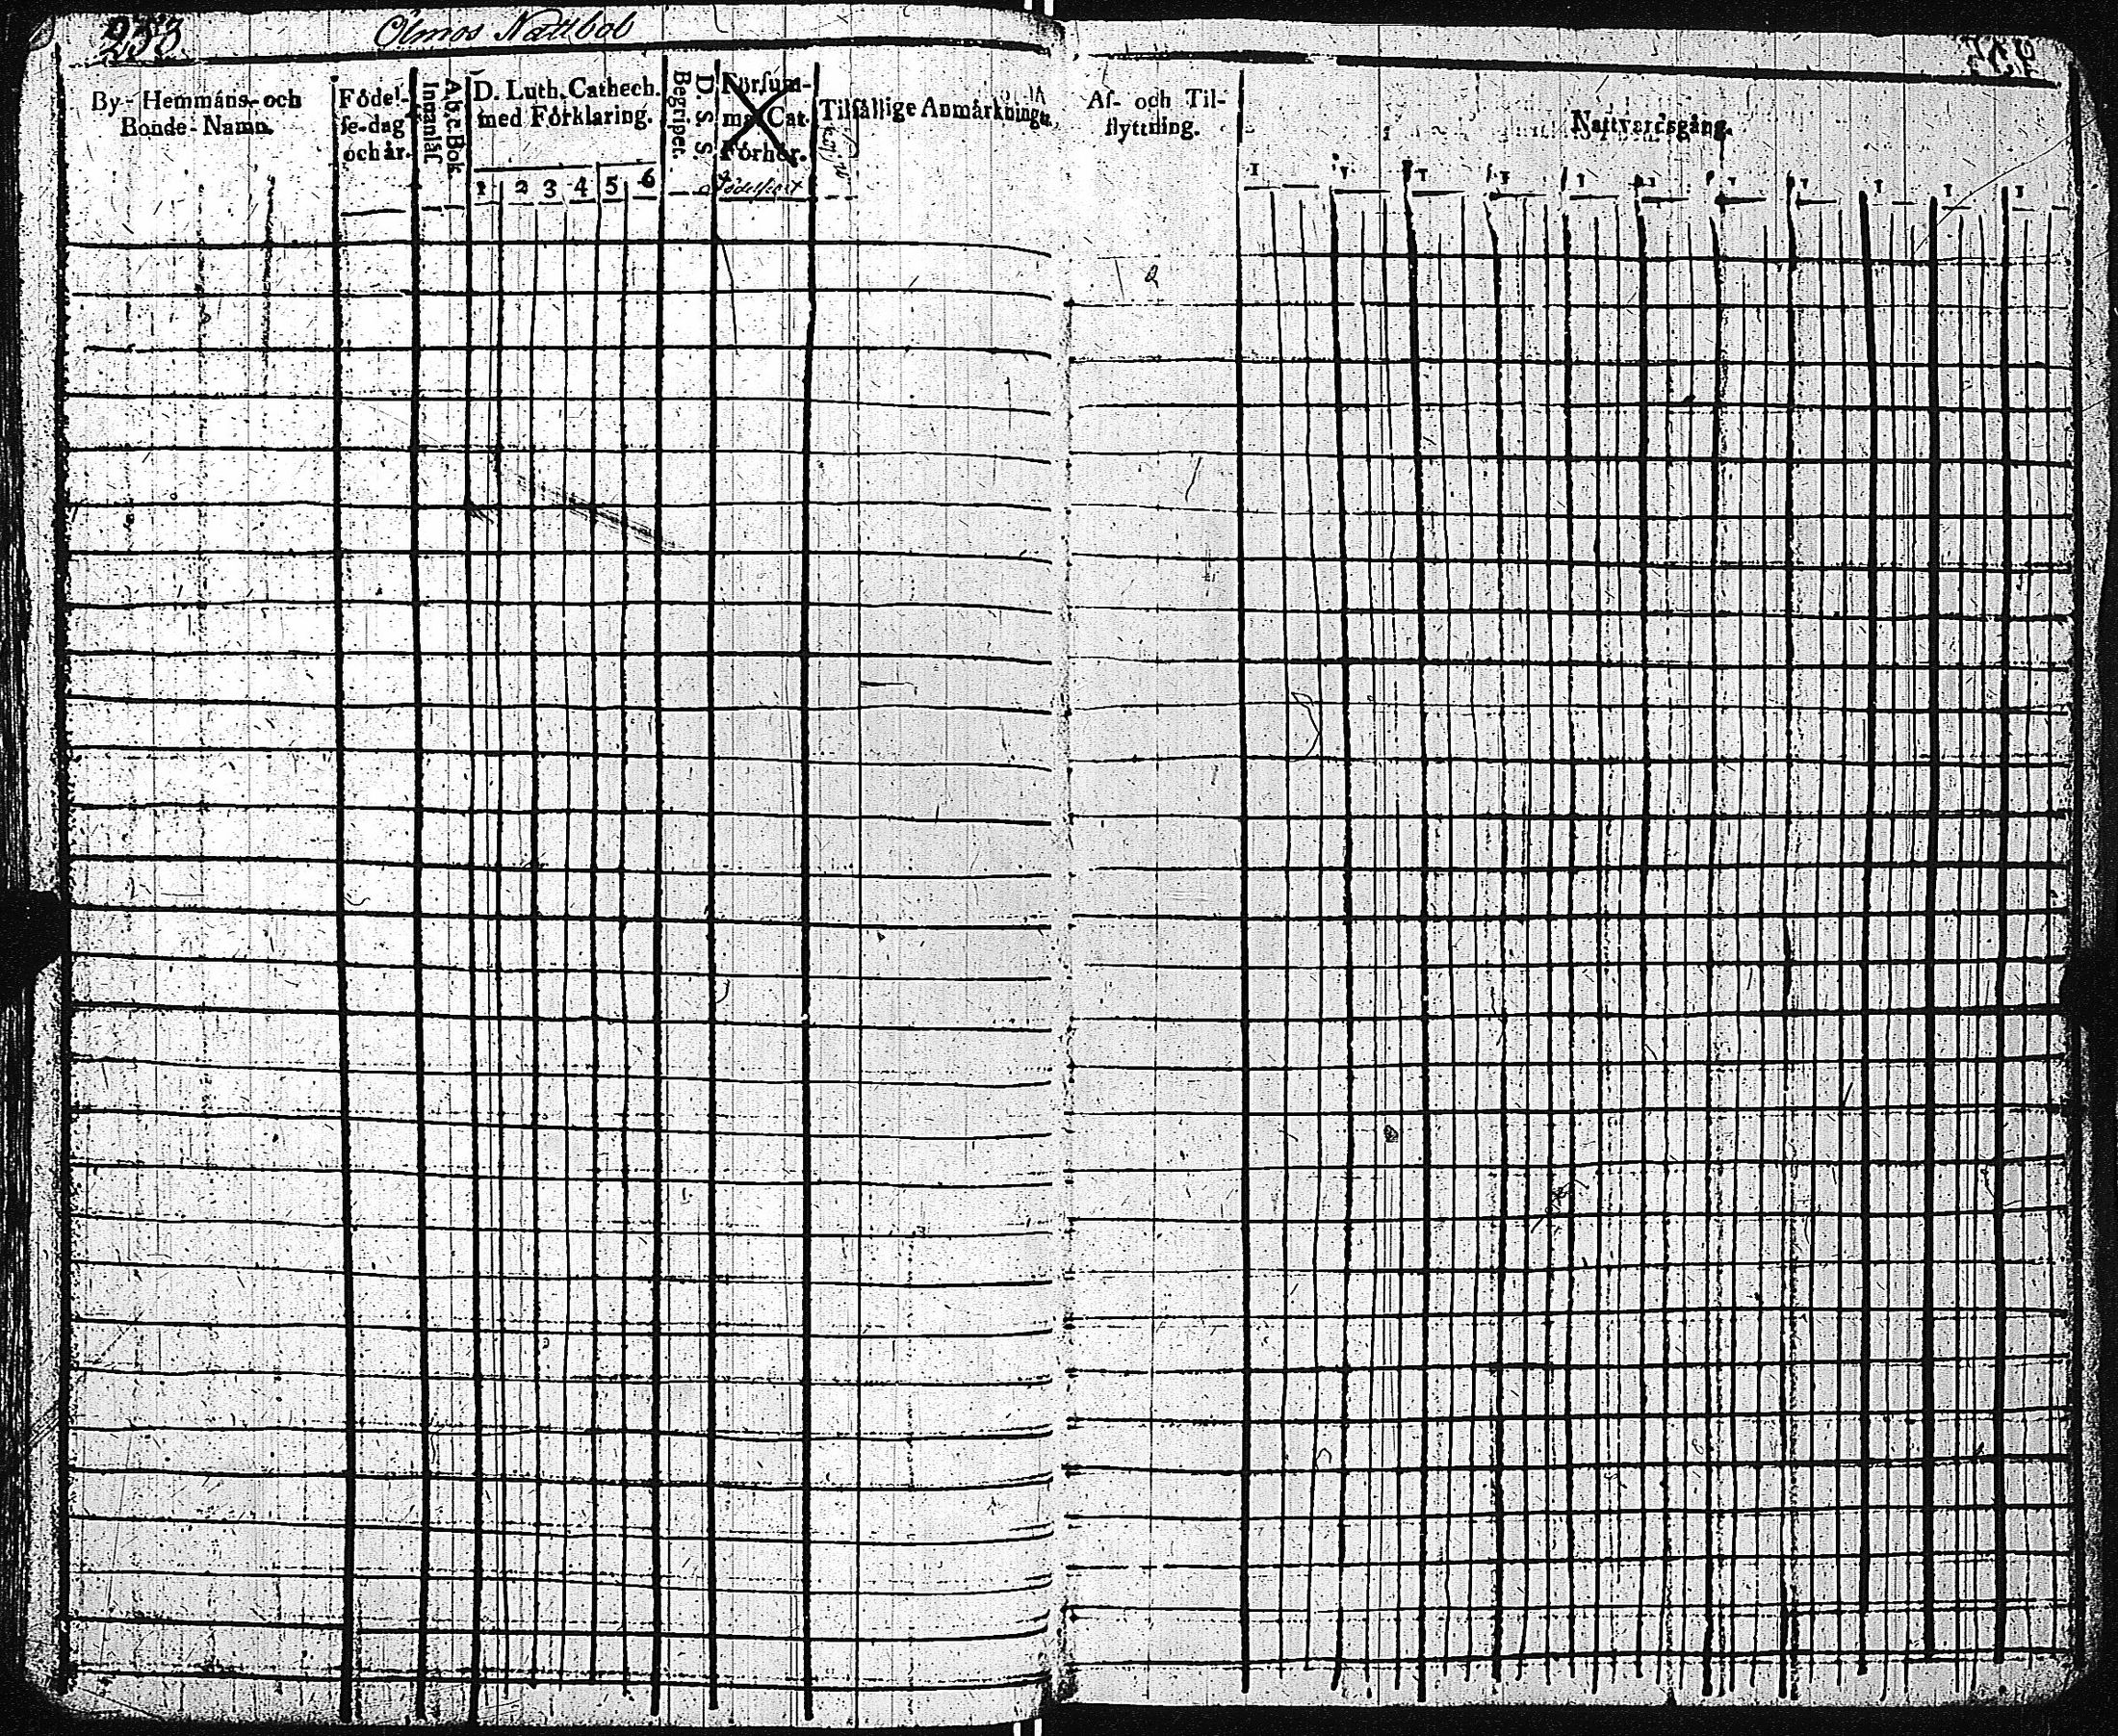 233
Ölmos Nattbob
By- Hemmans- och
Bonde-Namn.
Födel-
se-dag
och år.
A, b, c, Bok
Innanläs.
D. Luth. Cathech.
med Förklaring.
1 2 3 4 5 6
D. S. S.
Begriper.
Försum-
mat Cat.
Förhör.
Födelseort
Tilfällige Anmärkningar
Af- och Til-
flyttning.
Nattvardsgång.